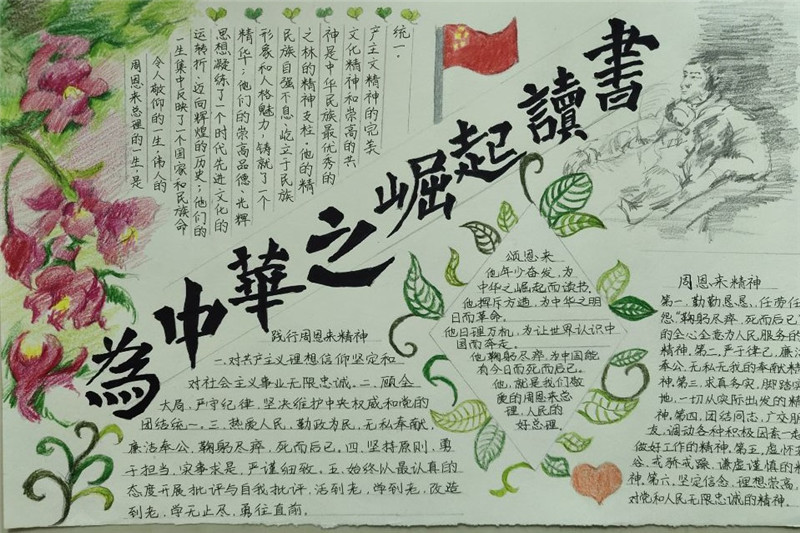 為中華之崛起讀書
周恩来总理的一生,是
令人敬仰的一生,伟人的
一生集中反映了一个国家和民族命
运转折、迈向辉煌的历史;他们的
思想凝练了一个时代先进文化的
精华;他们的崇高品德、光辉
形象和人格魅力,铸就了一个
民族自强不息、屹立于民族
之林的精神支柱。他的精
神是中华民族最优秀的
文化精神和崇高的共
产主义精神的完美
统一。
践行周恩来精神
一.对共产主义理想信仰坚定和
对社会主义事业无限忠诚。二.顾全
大局,严守纪律,坚决维护中央权威和党的
团结统一。三.热爱人民,勤政为民,无私奉献,
廉洁奉公,鞠躬尽瘁,死而后已。四.坚持原则,勇
于担当,实事求是,严谨细致。五.始终以最认真的
态度开展批评与自我批评,活到老,学到老,改造
到老,学无止尽,勇往直前。
颂恩来
他年少奋发,为
中华之崛起而读书。
他挥斥方遒,为中华之明
日而革命。
他日理万机,为让世界认识中
国而奔走。
他鞠躬尽瘁,为中国能
有今日而死而后已。
他,就是我们敬
爱的周恩来总
理,人民的
好总理。
周恩来精神
第一.勤勤恳恳、任劳任
怨"鞠躬尽瘁,死而后已"
的全心全意为人民服务的
精神。第二.严于律己,廉洁
奉公,无私无我的奉献精
神。第三.求真务实,脚踏实
地,一切从实际出发的精
神。第四.团结同志,广交朋
友,调动各种积极因素一起
做好工作的精神。第五.虚怀若
谷,戒骄戒躁、谦虚谨慎的精
神。第六.坚定信念,理想崇高,
对党和人民无限忠诚的精神。